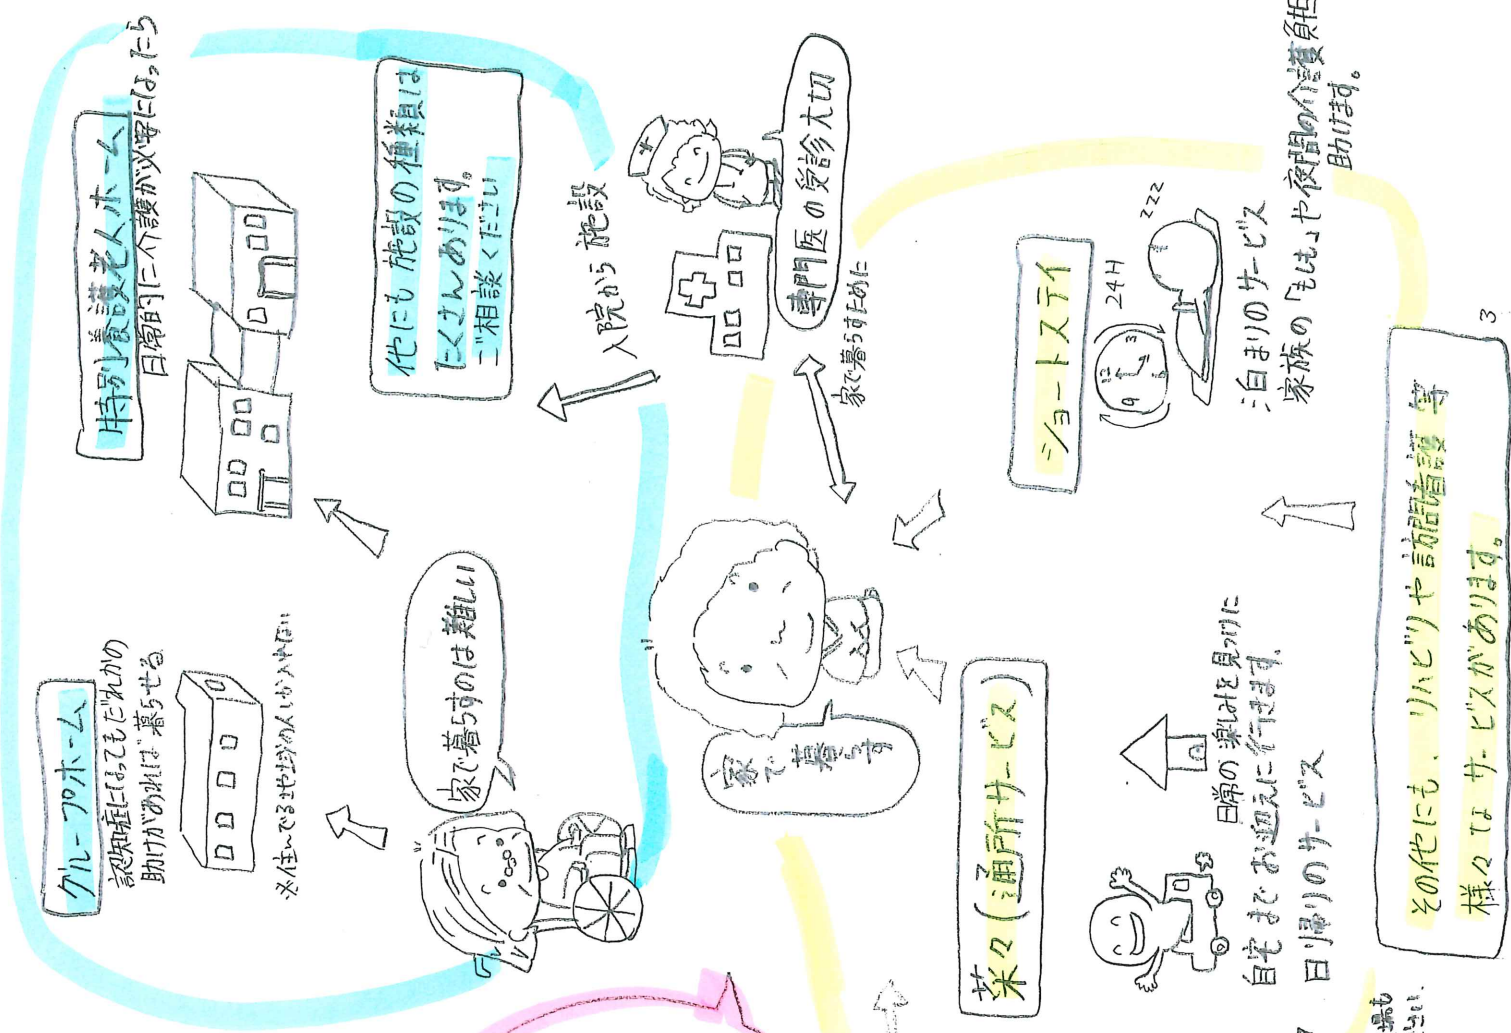 グループホーム
認知症になってもだれかの
助けがあれば暮らせる
※住んでる地域の人しか入れない
特別養護老人ホーム
日常的に介護が必要になったら
家で暮らすのは難しい
他にも施設の種類は
たくさんあります。
ご相談ください
入院から施設
専門医の受診大切
家で暮らすために
家で
暮らす
菜々(通所サービス)
日常の楽しみを見つけに
自宅までお迎えに行きます。
日帰りのサービス
ショートステイ
24H
12
3
9
zzz
泊まりのサービス
家族の「もしも」や夜間の介護負担
助けます。
その他にも、リハビリや訪問看護等
様々なサービスがあります。
3